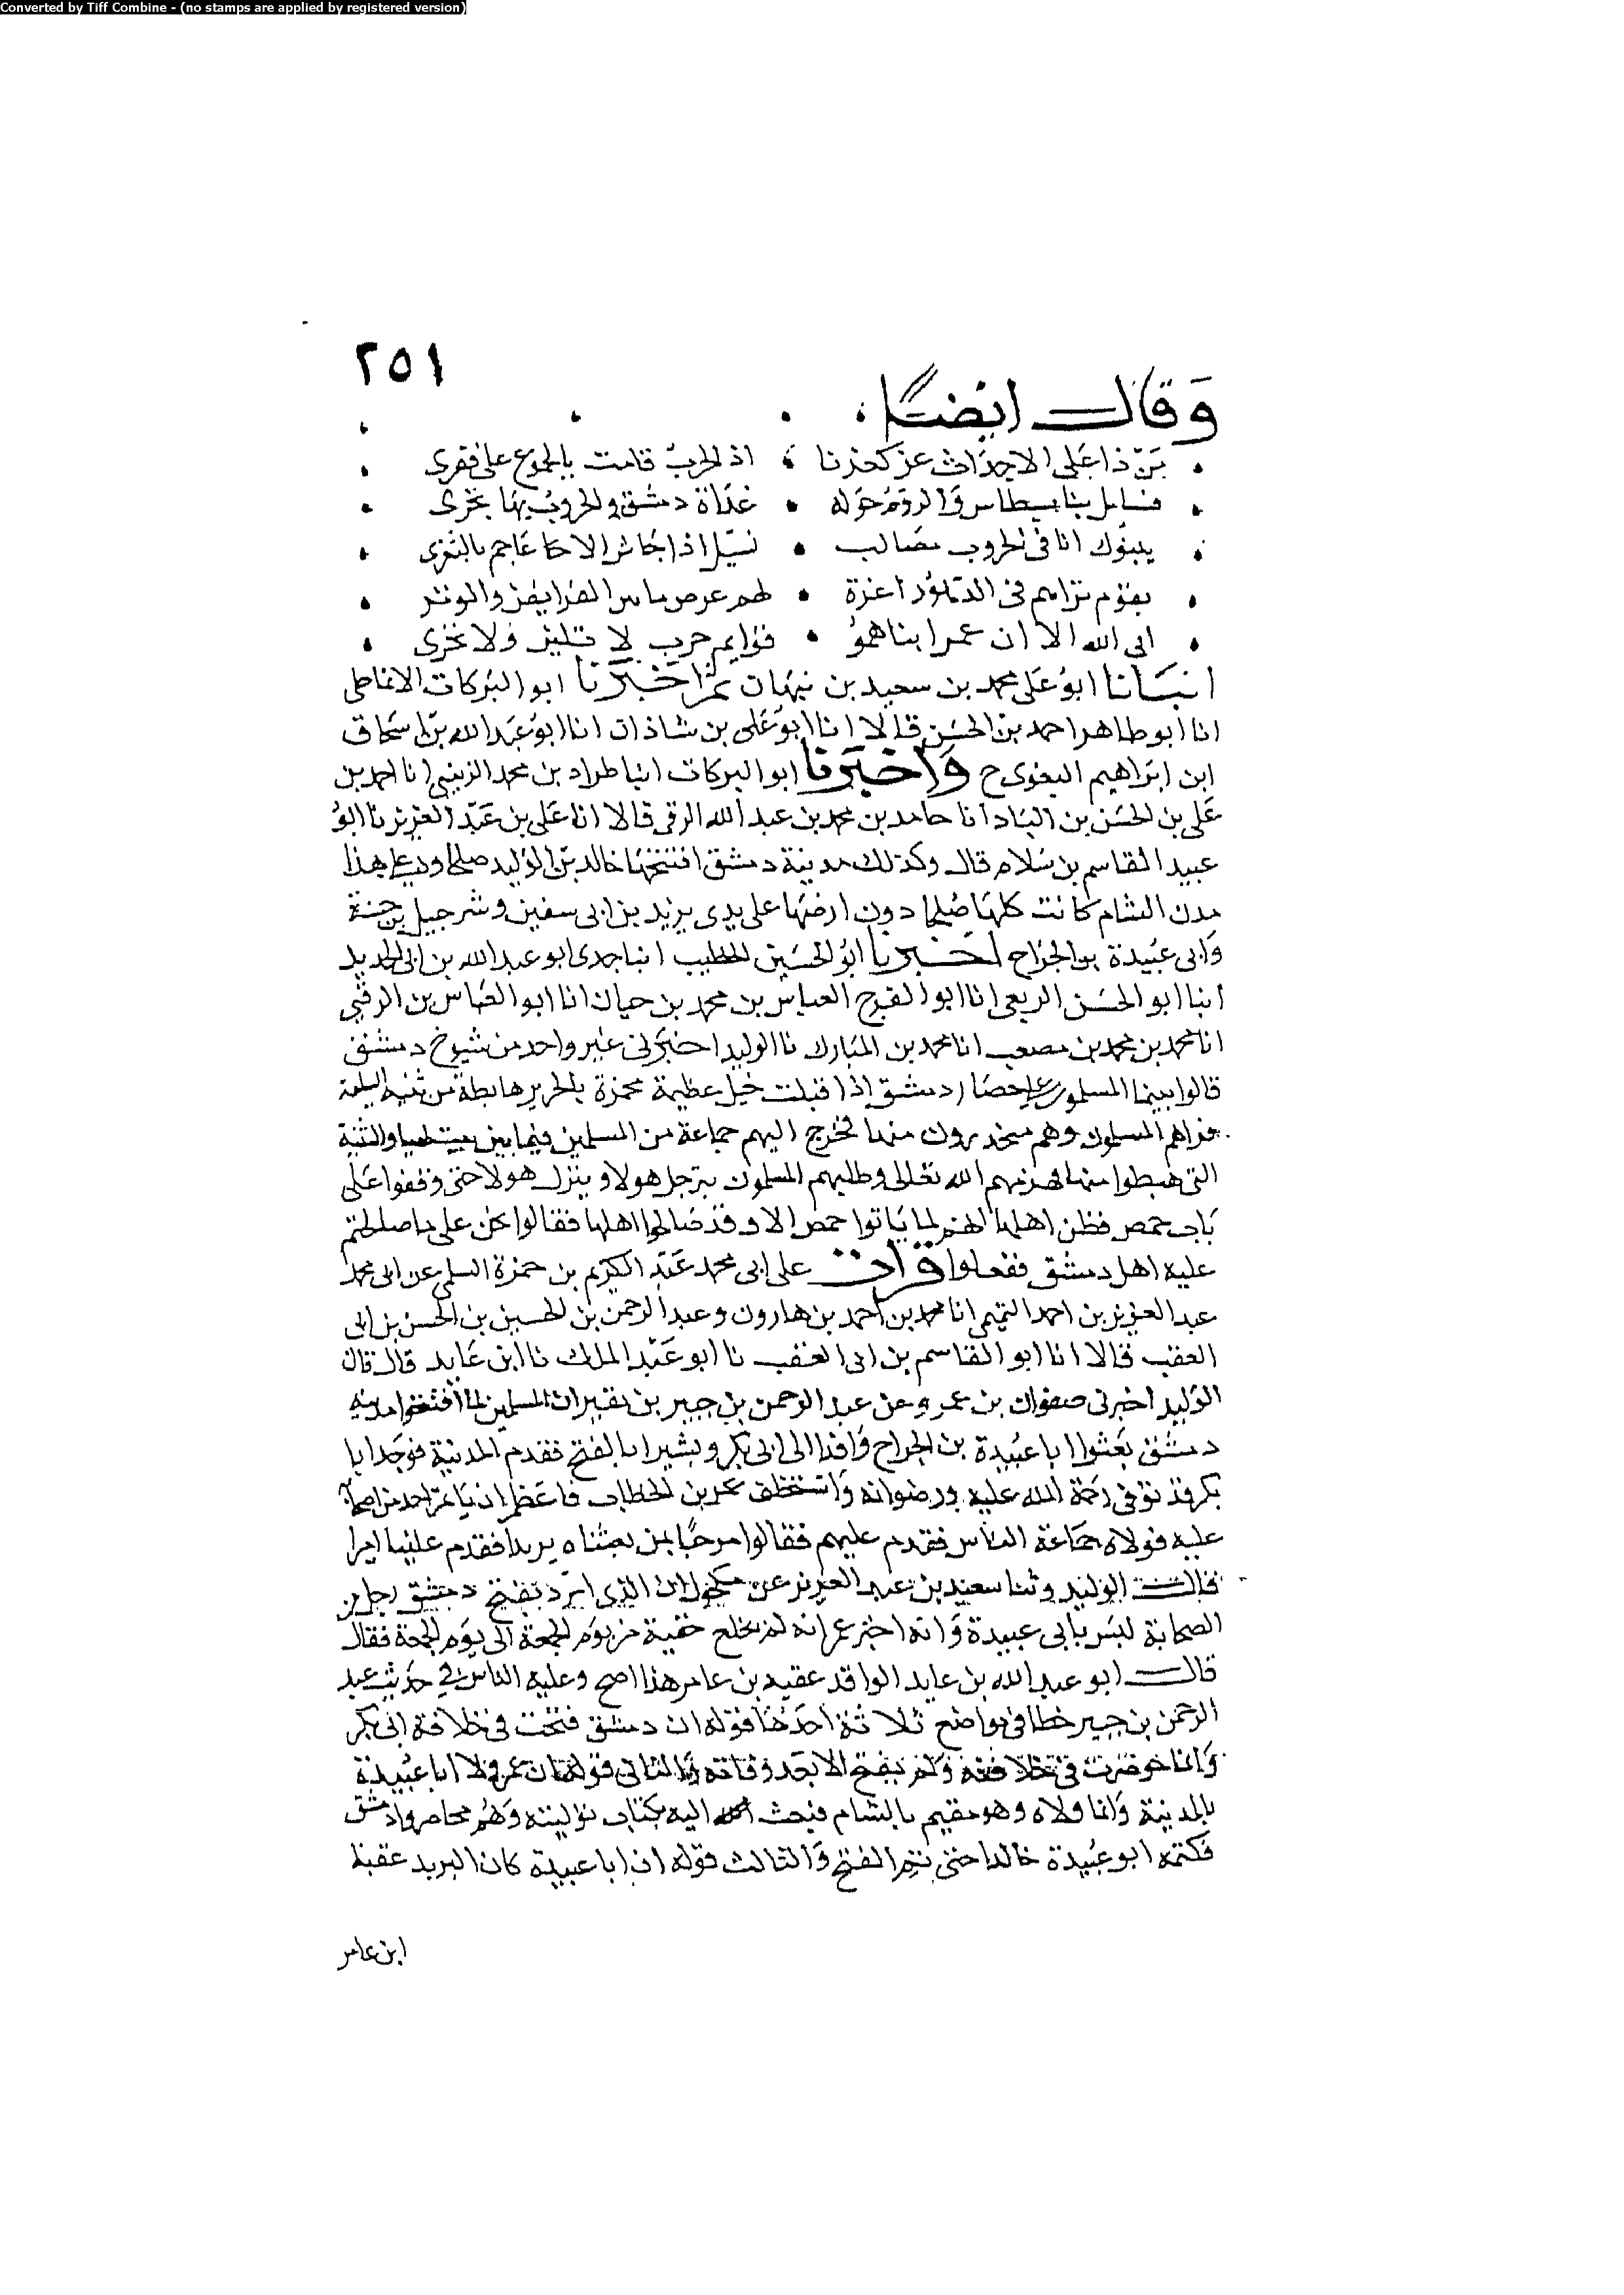 Converted by Tiff Combine - (no stamps are applied by registered version)
٢٥١
وقال ايضا
من ذا على الاحداث عز كعزنا اذ الحرب قامت بالجموع على
فسايل بنا بسطاس والروم حوله غداة دمشق والحروب بها تجرى
ينبؤك انا فى الحروب مصالب نسيل اذا جاش الاعاجم بالثغرى
بقوم تراهم فى اعزة لهم عرض ما بين الفرايض والوتر
ابى الله الا ان عمرا بناهمو فوايم حرب لا تلين ولا تخرى
انبانا ابو على محمد بن سعيد بن نبهان ثم اخبرنا ابو البركات الانماطى
انا ابو طاهر احمد بن الحسن قالا انا ابو على بن شاذان انا ابو عبد الله بن اسحاق
ابن ابراهيم البغوى ح واخبرنا ابو البركات انبا طراد بن محمد الزينبى انا احمد بن
على بن الحسن بن الباد انا حامد بن محمد بن عبد الله الرقى قالا انا على بن عبد العزيز نا ابو
عبيد القاسم بن سلام قال وكذلك مدينة دمشق افتتحها خالد بن الوليد صلحا وعلى هذا
مدن الشام كانت كلها صلحا دون ارضها على يدى يزيد بن ابى سفين وشرحبيل بن حسنة
وابى عبيدة بن الجراح اخبرنا ابو الحسين الخطيب انبا جدى ابو عبد الله بن ابى الحديد
انبا ابو الحسن الربعى انا ابو الفرج العباس بن محمد بن حيان انا ابو العباس بن الزفتى
انا محمد بن محمد بن مصعب انا محمد بن المبارك نا الوليد اخبرنى غير واحد من شيوخ دمشق
قالوا بينما المسلمون على حصار دمشق اذا قبلت خيل عظيمة مخمرة بالحرير هابطة من ثنية السلمة
فراهم المسلمون وهم منحدرون منها فخرج اليهم جماعة من المسلمين فيما بين بيت لهيا والثنية
التى هبطوا منها فهزمهم الله تعالى وطلبهم المسلمون يترجل هولا وينزل هولا حتى وقفوا على
باب حمص فظن اهلها انهم لما ياتوا حمص الا وقد صالحوا اهلها فقالوا نحن على ما صالحتم
عليه اهل دمشق ففعلوا قرات على ابى محمد عبد الكريم بن حمزة السلمى عن ابى محمد
عبد العزيز بن احمد التميمى انا محمد بن احمد بن هارون وعبد الرحمن بن الحسين بن الحسن بن ابى
العقب قالا انا ابو القاسم بن ابى العقب نا ابو عبد الملك نا ابن عايد قال قال
الوليد اخبرنى صفوان بن عمرو عن عبد الرحمن بن جبير بن نفير ان المسلمين لما افتتحوا مدينه
دمشق بعثوا ابا عبيدة بن الجراح وافدا الى ابى بكر وبشيرا بالفتح فقدم المدينة فوجد ابا
بكر قد توفى رحمة الله عليه ورضوانه واستخلف عمر بن الخطاب فاعظم ان يتامر احد من اصحابه
عليه فولاه جماعة الناس فقدم عليهم فقالوا مرحبا بمن بعثناه بريدا فقدم علينا اميرا
قال الوليد وثنا سعيد بن عبد العزيز عن مكحول ان الذى ابرد بفتح دمشق رجل من
الصحابة ليس بابى عبيدة وانه اخبر عمر انه لم يخلع خفيه من يوم الجمعة الى يوم الجمعة فقال
قال ابو عبد الله بن عايد الوافد عقبه بن عامر هذا اصح وعليه الناس فى حديث عبد
الرحمن بن جبير خطا فى مواضع ثلاثة احدها قوله ان دمشق فتحت فى خلافة ابى بكر
وانما حوصرت فى خلافته ولم تفتح الا بعد وفاته والثانى قوله ان عمر ولا ابا عبيدة
بالمدينة وانما ولاه وهو مقيم بالشام فبعث اليه بكتاب توليته وهم محاصروا دمشق
فكتمه ابو عبيدة خالدا حتى تم الفتح والثالث قوله ان ابا عبيدة كان البريد عقبة
ابن عامر